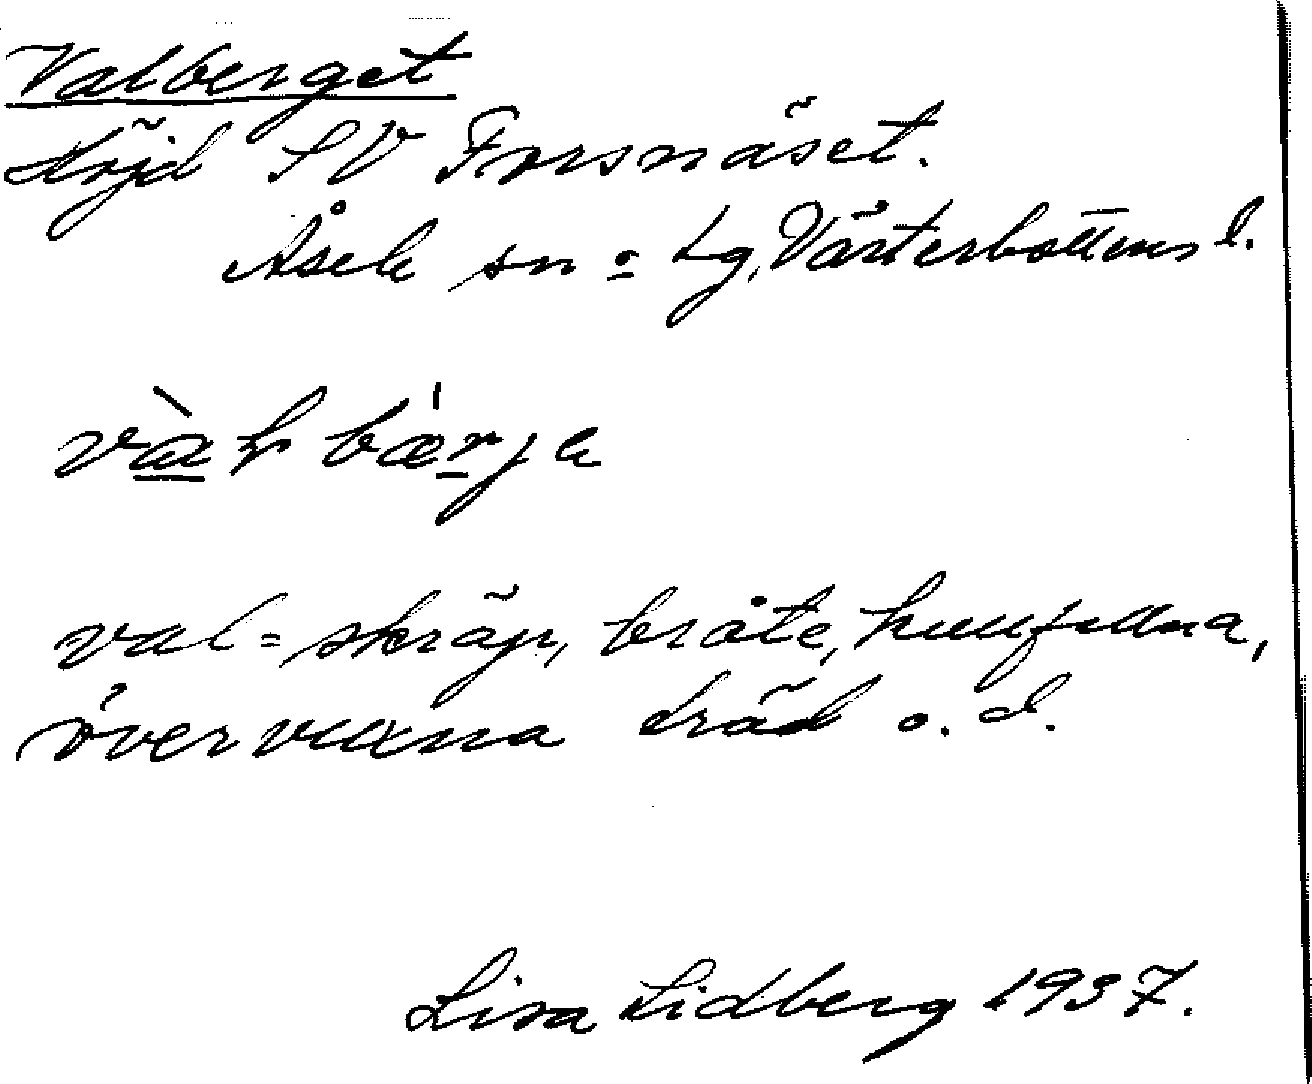 Valberget
Höjd SV Forsnäset.
Åsele sn o lg, Västerbottens l.
vàɽ bæ̀rje
val = skräp, bråte, kullfallna,
övervuxna träd o. d.
Lisa Lidberg 1937.